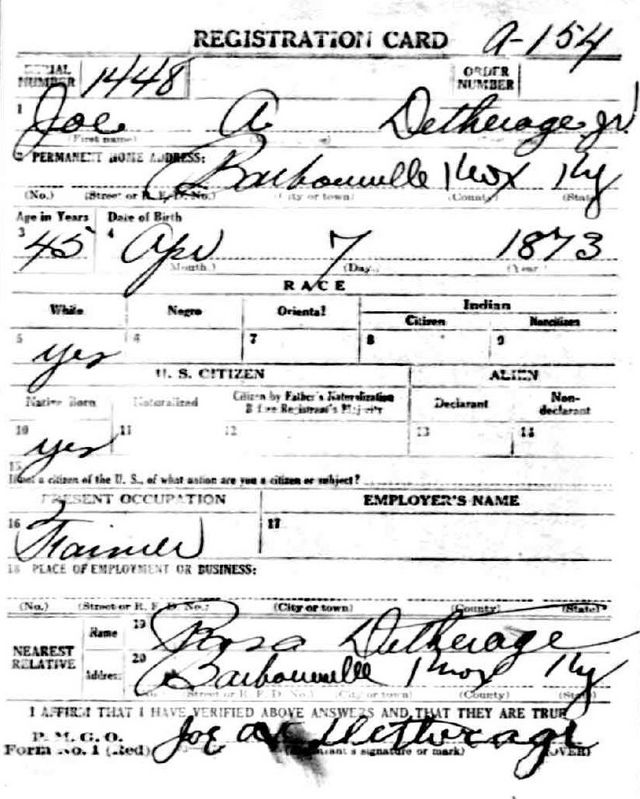 REGISTRATION CARD A-154
SERIAL NUMBER 1448 ORDER NUMBER
1 Joe A Detherage Jr.
(First name)
2 PERMANENT HOME ADDRESS:
Barbourville Knox Ky
(No.) (Street or R. F. D. No.) (City or town) (County) (State)
Age in Years Date of Birth
3 45 4 Apr 7 1873
(Month.) (Day.) (Year.)
RACE
White Negro Oriental Indian
Citizen Noncitizen
5 yes 6 7 8 9
U. S. CITIZEN ALIEN
Native Born Naturalized Citizen by Father's Naturalization Before Registrant's Majority Declarant Non-declarant
10 yes 11 12 13 14
15
If not a citizen of the U. S., of what nation are you a citizen or subject?
PRESENT OCCUPATION EMPLOYER'S NAME
16 Farmer 17
18 PLACE OF EMPLOYMENT OR BUSINESS:
(No.) (Street or R. F. D. No.) (City or town) (County) (State)
NEAREST RELATIVE Name 19 Rosa Detherage
Address 20 Barbourville Knox Ky
(No.) (Street or R. F. D. No.) (City or town) (County) (State)
I AFFIRM THAT I HAVE VERIFIED ABOVE ANSWERS AND THAT THEY ARE TRUE
P. M. G. O.
Form No. 1 (Red) Joe A Detherage
(Registrant's signature or mark) (OVER)